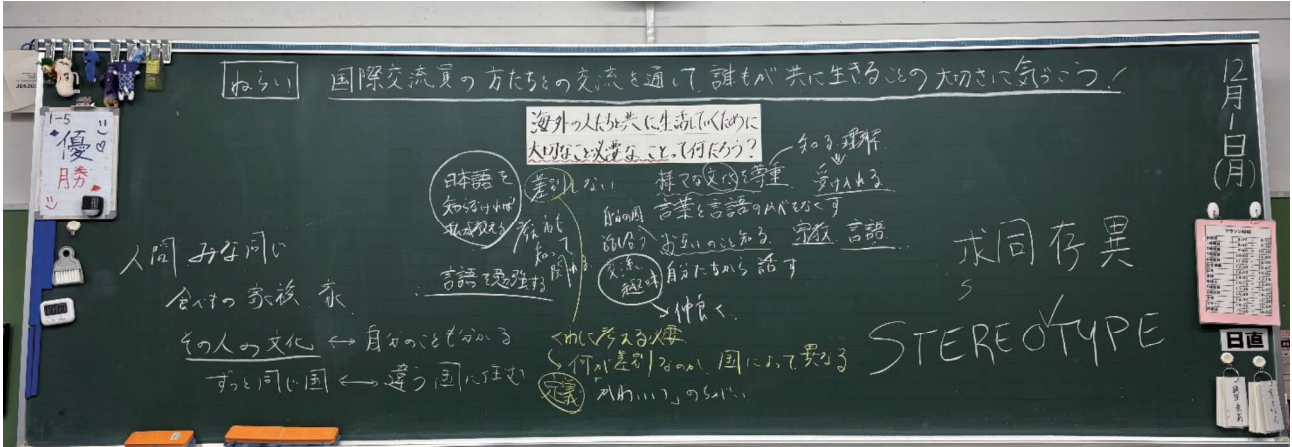 ねらい 国際交流員の方たちとの交流を通して、誰もが共に生きることの大切さに気づこう!
12月1日(月)
海外の人たちと共に生活していくために
大切なこと必要なことって何だろう?
1-5
優
勝
日本語を
知らなければ
私が教える
差別しない
考え方も
知って
関わる
言語を勉強する
様々な文化を尊重
知る、理解
受け入れる
言葉と言語のカベをなくす
自分の国
お互いのこと知る
宗教 言語
交流
趣味
自分たちから話す
仲良く
人間 みな同じ
食べもの 家族 家
その人の文化 ↔ 自分のことも分かる
ずっと同じ国 ↔ 違う国に住む
何が差別なのか、国によって異なる
定義
「かわいい」のちがい
求同存異
STEREOTYPE
マラソン
日直